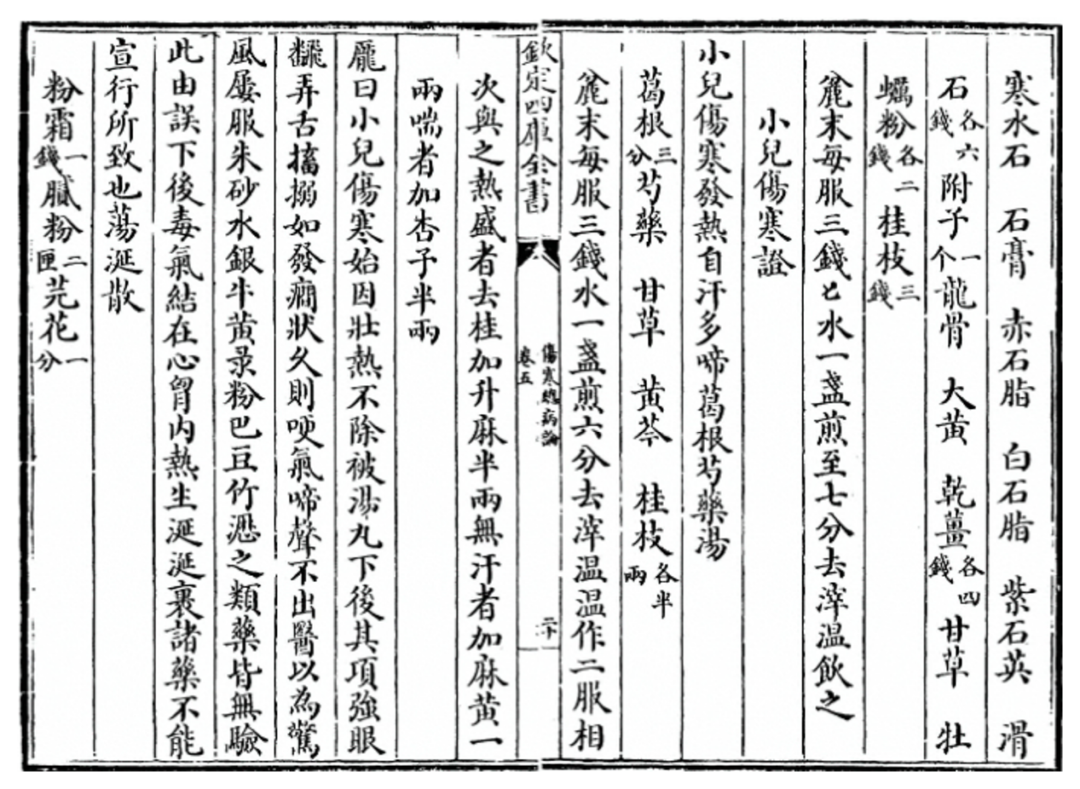 寒水石 石膏 赤石脂 白石脂 紫石英 滑
石各六錢 附子一个 龍骨 大黃 乾薑各四錢 甘草 牡
蠣粉各二錢 桂枝三錢
麄末每服三錢匕水一盞煎至七分去滓温飲之
小兒傷寒證
小兒傷寒發熱自汗多啼葛根芍藥湯
葛根三分 芍藥 甘草 黃芩 桂枝各半兩
麄末每服三錢水一盞煎六分去滓温温作二服相
欽定四庫全書
傷寒總病論
卷五
二十
次與之熱盛者去桂加升麻半兩無汗者加麻黃一
兩喘者加杏子半兩
龎曰小兒傷寒始因壯熱不除被湯丸下後其項強眼
飜弄舌搐搦如發癎狀久則哽氣啼聲不出醫以為驚
風屢服朱砂水銀牛黃录粉巴豆竹瀝之類藥皆無驗
此由誤下後毒氣結在心胷内熱生涎涎裹諸藥不能
宣行所致也蕩涎散
粉霜一錢 膩粉二匣 芫花一分